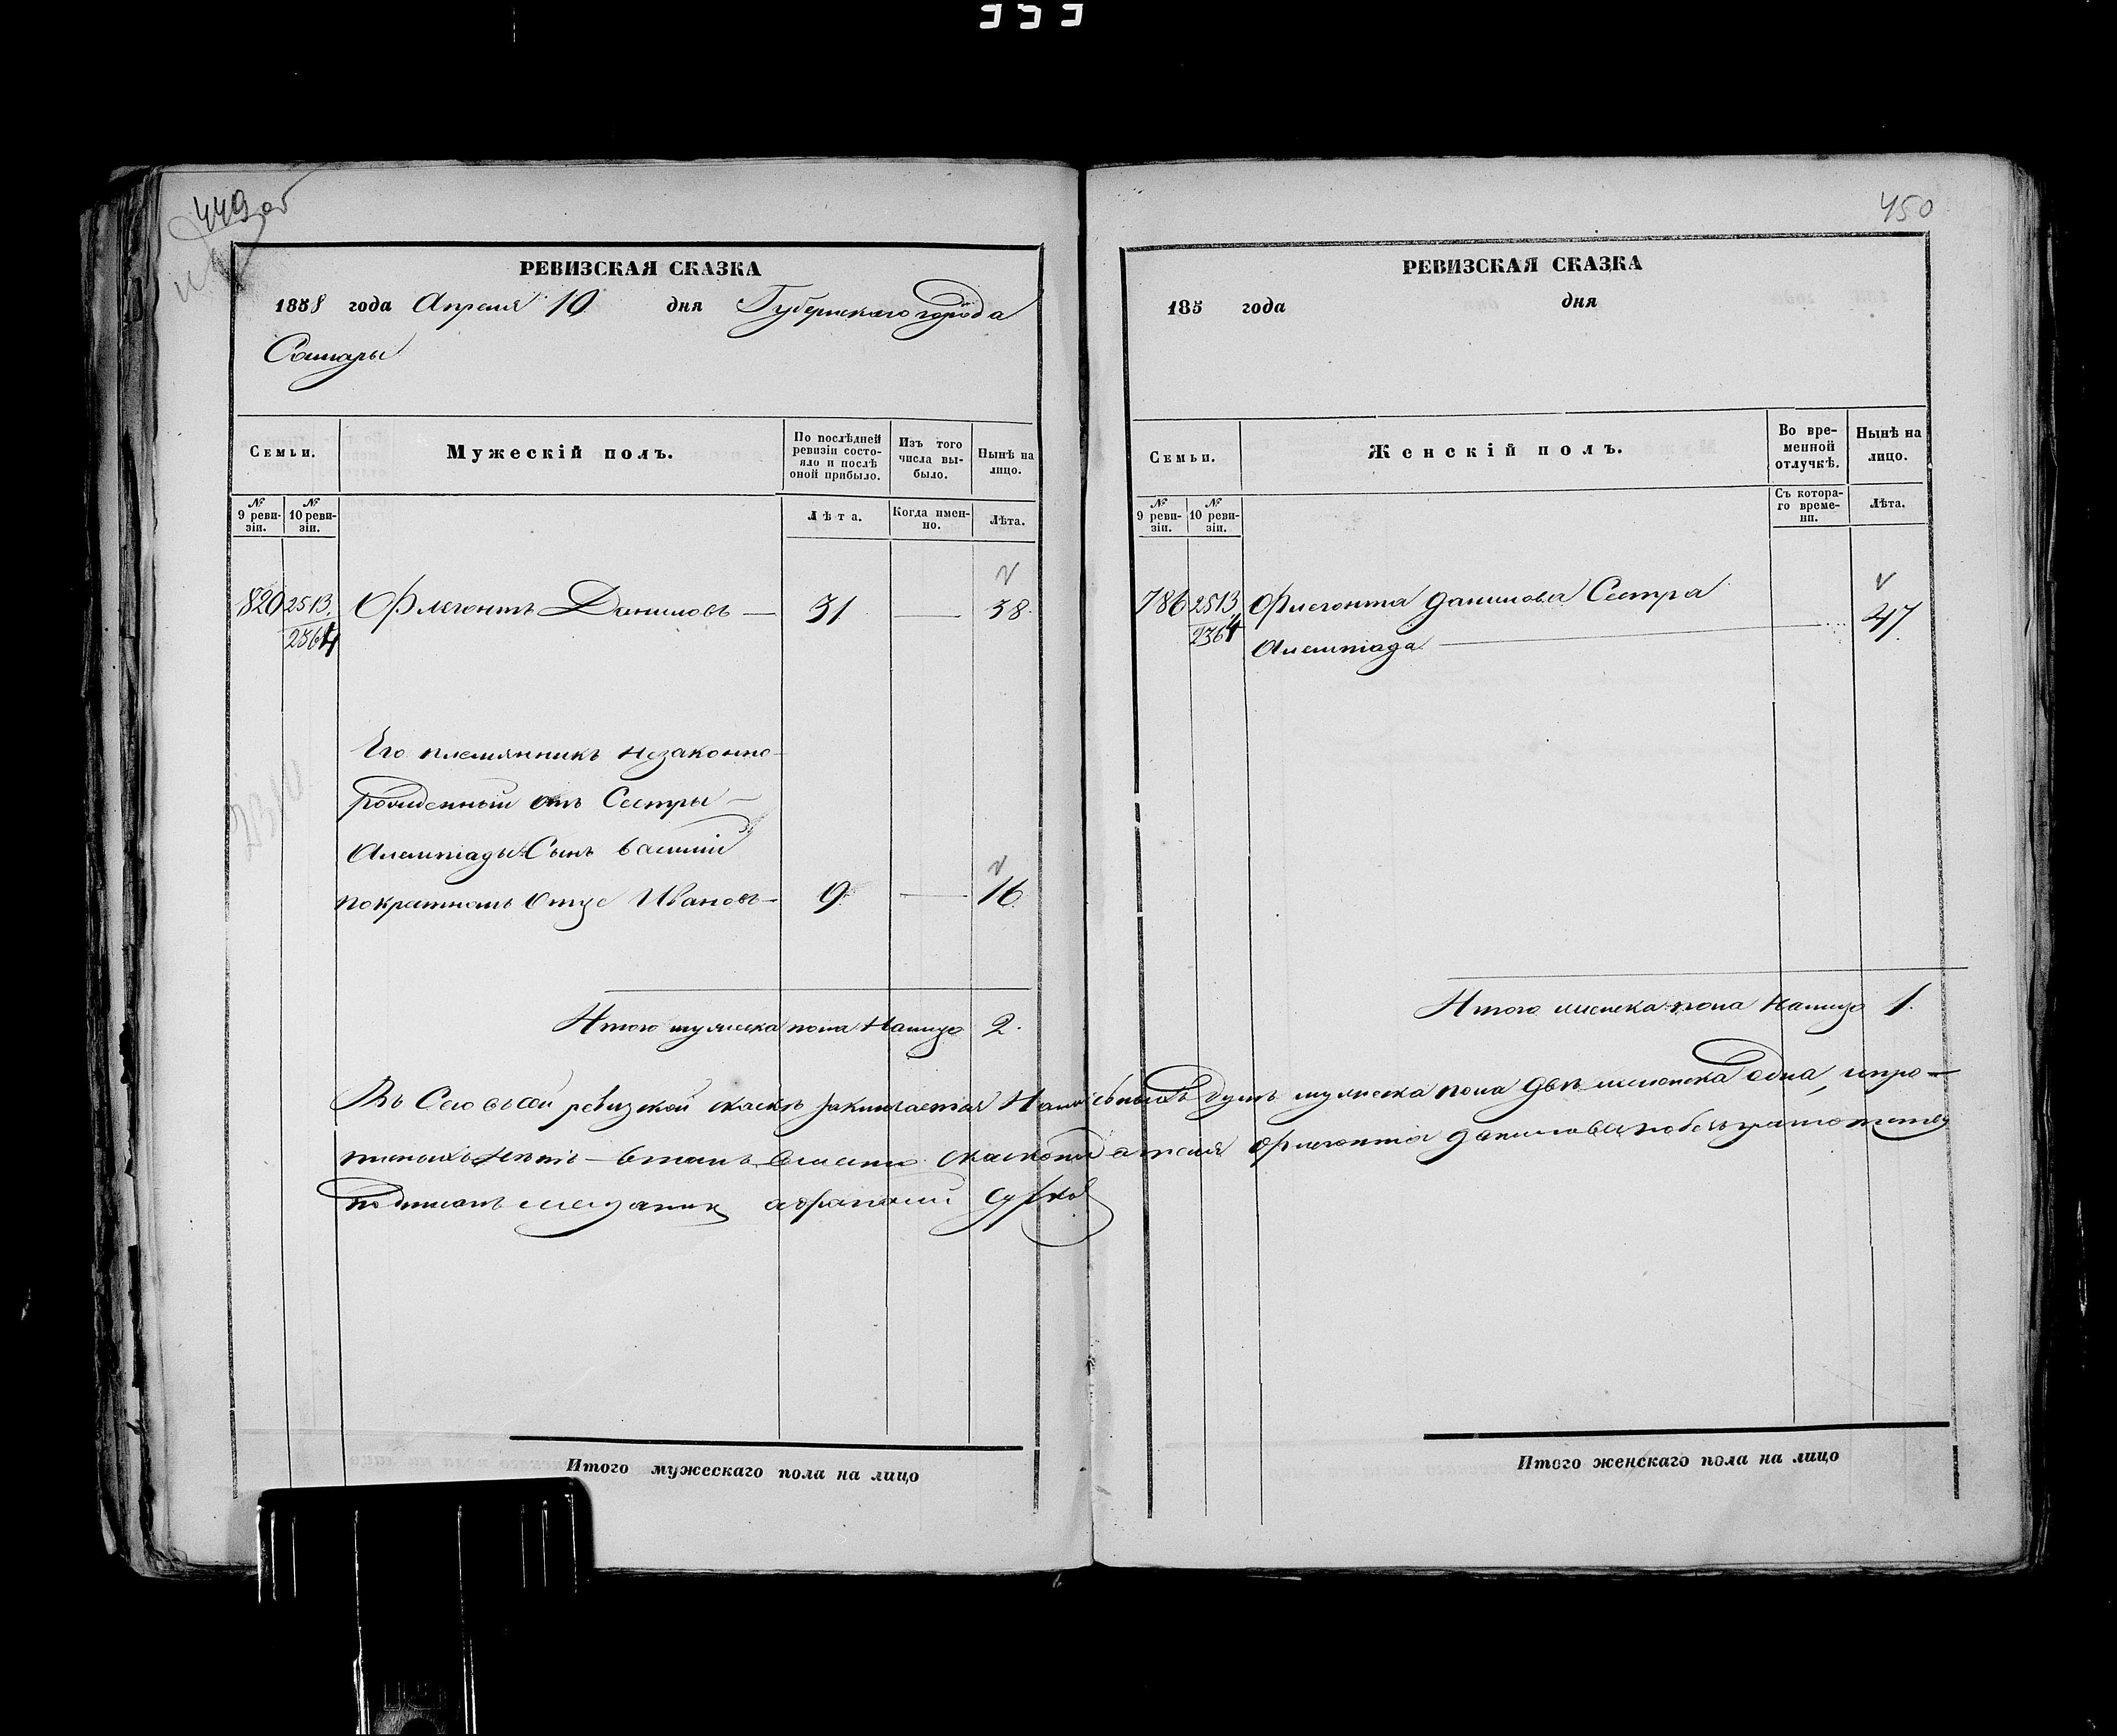 353
449 об
РЕВИЗСКАЯ СКАЗКА
1858 года Апреля 10 дня Губернскаго города
Самары
Семьи.
Мужескій полъ.
По послѣдней ревизіи состояло и послѣ оной прибыло.
Изъ того числа выбыло.
Нынѣ на лицо.
№ 9 ревизіи.
№ 10 ревизіи.
Лѣта.
Когда именно.
Лѣта.
820 2513 Флегонтъ Даниловъ — 31 — 38.
2364
Его племянникъ незаконно-
рожденный отъ Сестры —
Алемпіады Сынъ Василий
по крестномъ Отце Ивановъ — 9 — 16
Итого мужеска пола на лицо 2.
450
РЕВИЗСКАЯ СКАЗКА
185 года дня
Семьи.
Женскій полъ.
Во временной отлучкѣ.
Нынѣ на лицо.
№ 9 ревизіи.
№ 10 ревизіи.
Съ котораго времени.
Лѣта.
786 2513 Флегонта Данилова Сестра
2364 Алемпіада — 47.
Итого женска пола на лицо 1.
Въ Сей ревизской скаскѣ заключается душъ мужеска пола двѣ женска одна,
Флегонта Данилова
мещанин
Итого мужескаго пола на лицо
Итого женскаго пола на лицо